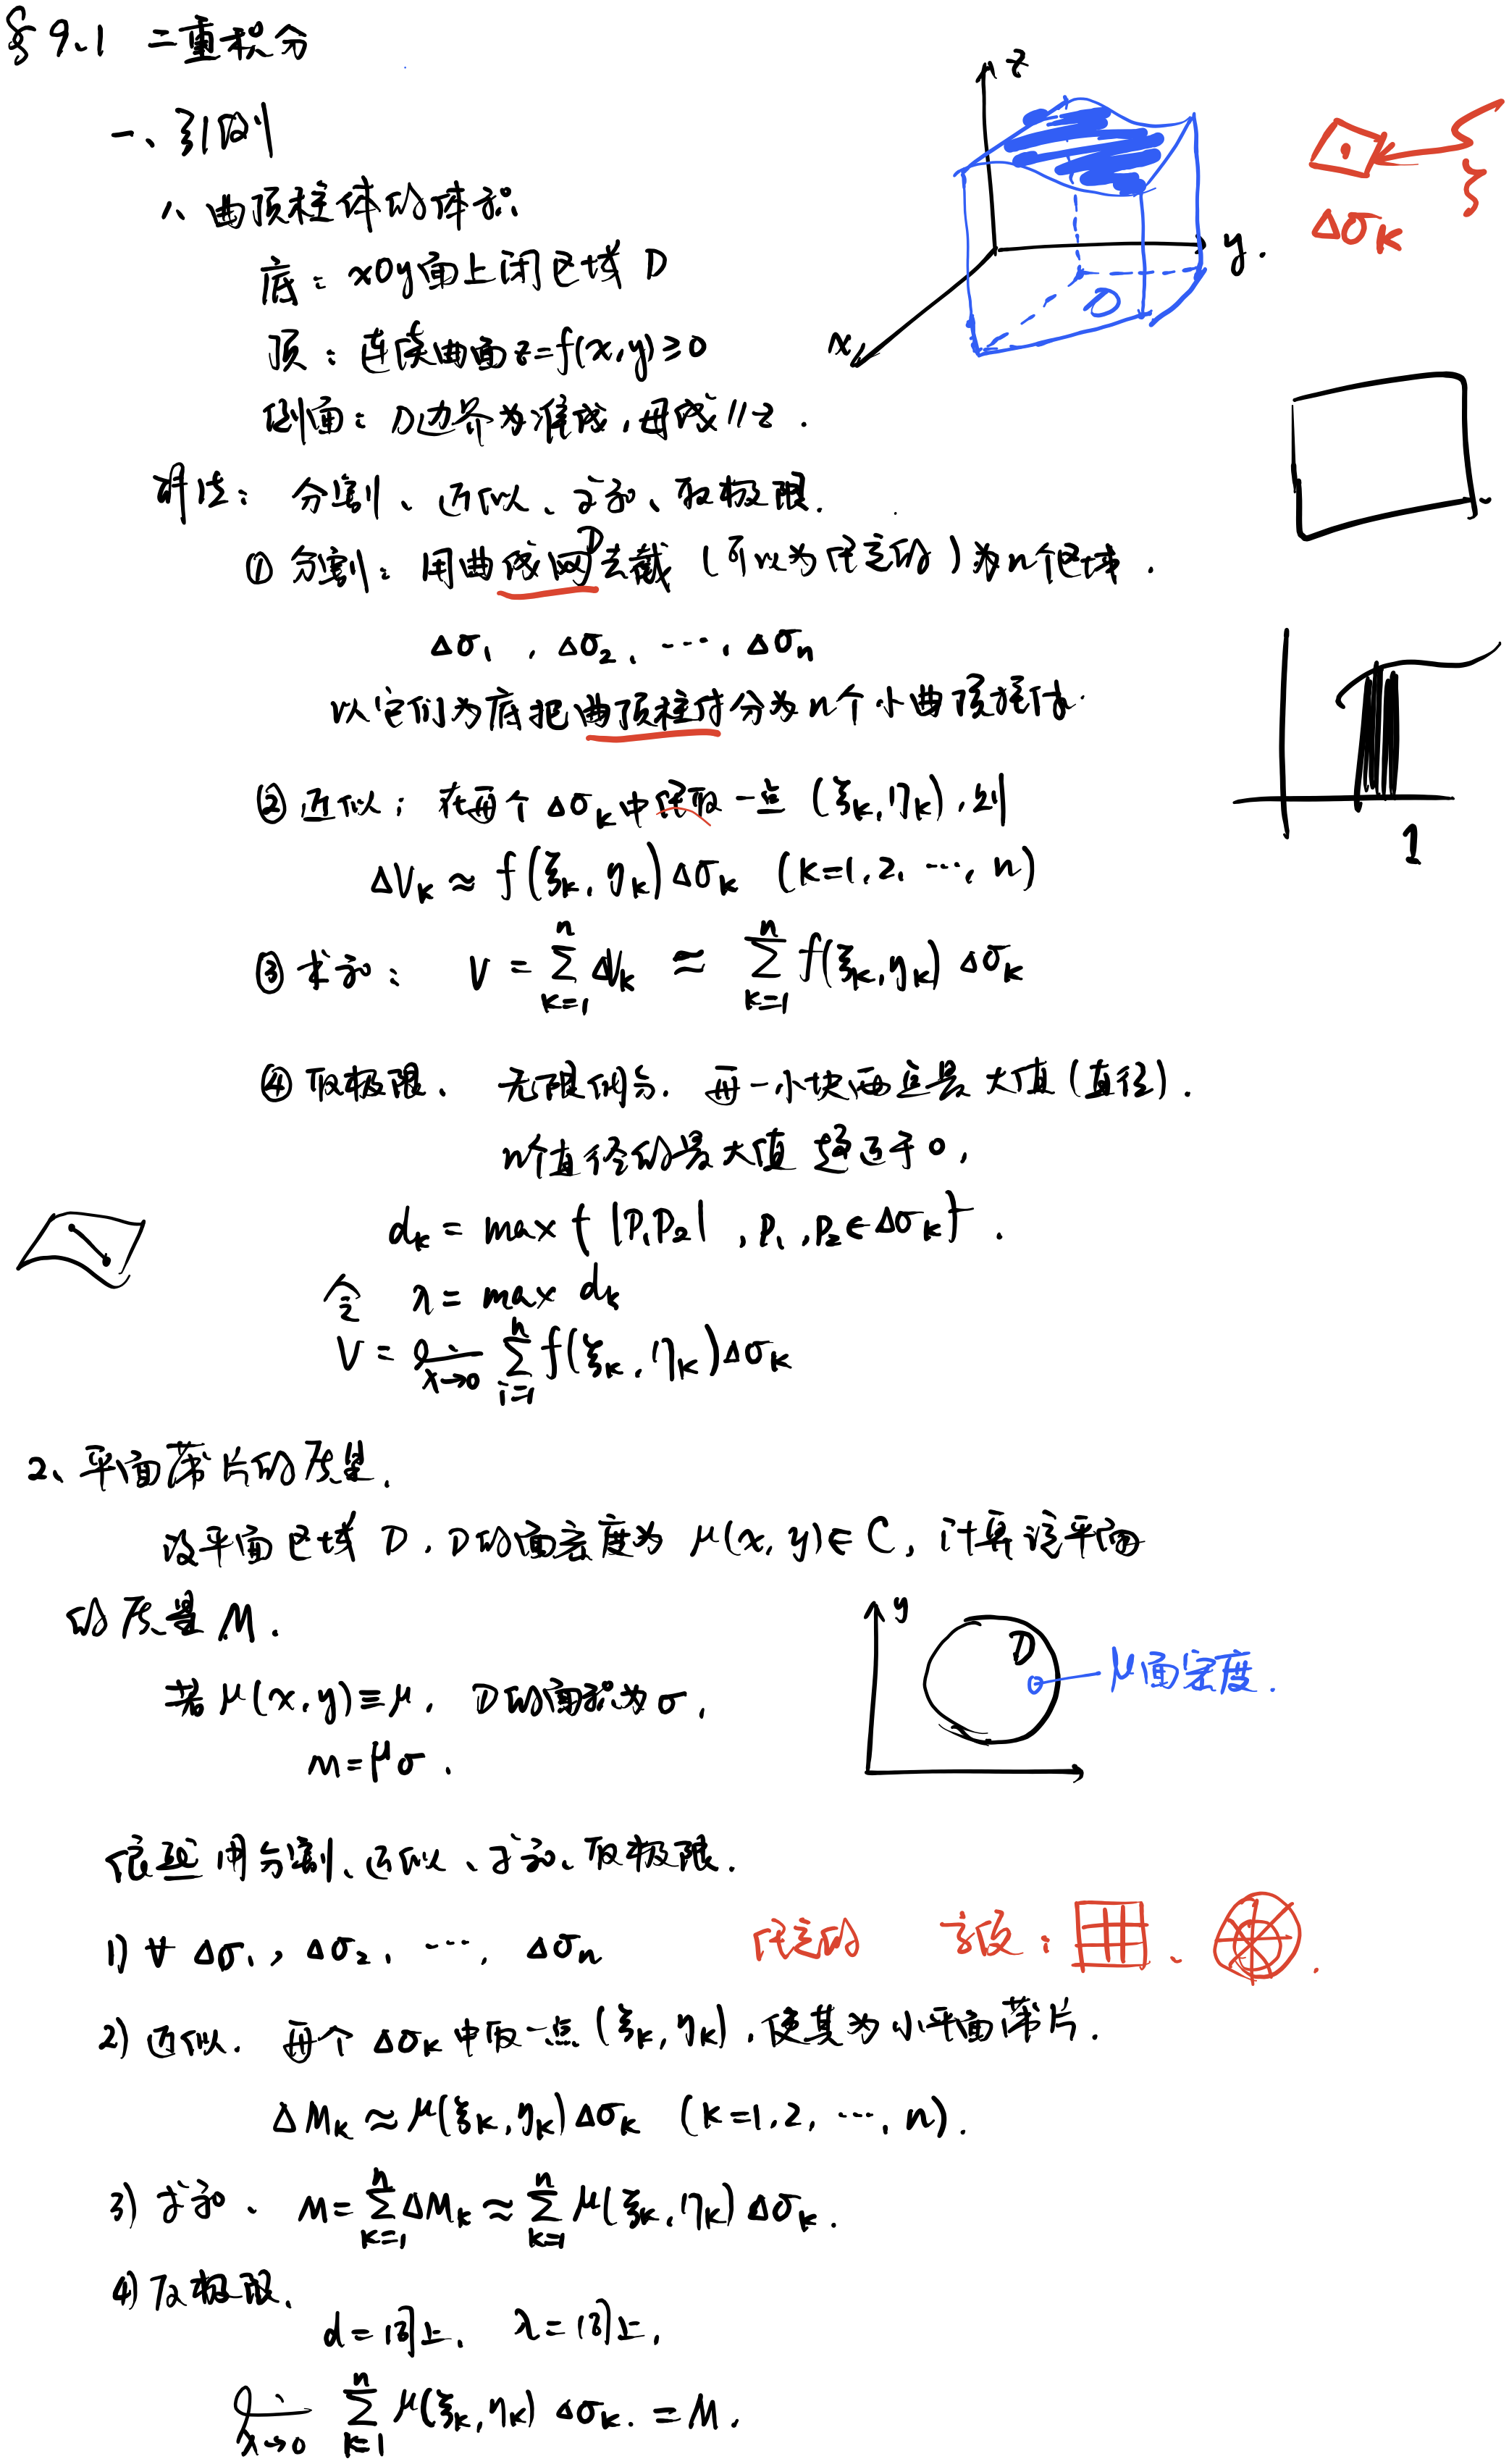 §9.1 二重积分
一、引例
1、曲顶柱体的体积.
底：xOy面上闭区域 D
顶：连续曲面 z=f(x,y)≥0
侧面：D边界为准线，母线 // z .
解法： 分割、近似、求和、取极限.
① 分割：用曲线网去截 D (可以为任意的) 为n个区域 .
Δσ₁ , Δσ₂, ⋯, Δσₙ
以它们为底把曲顶柱体分为n个小曲顶柱体.
② 近似；在每个 Δσₖ 中任取一点 (ξₖ,ηₖ), 则
ΔVₖ ≈ f(ξₖ, ηₖ)Δσₖ (k=1,2, ⋯, n)
③ 求和： V = ∑ₖ₌₁ⁿ ΔVₖ ≈ ∑ₖ₌₁ⁿ f(ξₖ,ηₖ) Δσₖ
④ 取极限、 无限细分. 每一小块两点最大值 (直径) .
n个直径的最大值 趋近于 0,
dₖ = max { |P₁P₂| , P₁ ,P₂ ∈ Δσₖ} .
令 λ = max dₖ
V = lim λ→0 ∑ᵢ₌₁ⁿ f(ξₖ, ηₖ)Δσₖ
z
y.
x
D
Δσₖ
ξ
1
2、平面薄片的质量.
设平面区域 D, D的面密度为 μ(x, y)∈ C, 计算该平面
的质量 M .
若 μ(x,y)≡μ, D的面积为σ,
m=μσ .
y
D
μ面密度.
依然用分割、近似、求和、取极限.
1) ∀ Δσ₁, Δσ₂, ⋯, Δσₙ 任意的 方便： 、 .
2) 近似. 每个 Δσₖ 中取一点 (ξₖ, ηₖ), 使其为小平面薄片.
ΔMₖ ≈ μ(ξₖ,ηₖ)Δσₖ (k=1,2, ⋯, n) .
3) 求和、 M=∑ₖ₌₁ⁿ ΔMₖ ≈ ∑ₖ₌₁ⁿ μ(ξₖ,ηₖ) Δσₖ .
4) 取极限.
d = 同上, λ = 同上,
lim λ→0 ∑ₖ₌₁ⁿ μ(ξₖ,ηₖ) Δσₖ. = M .